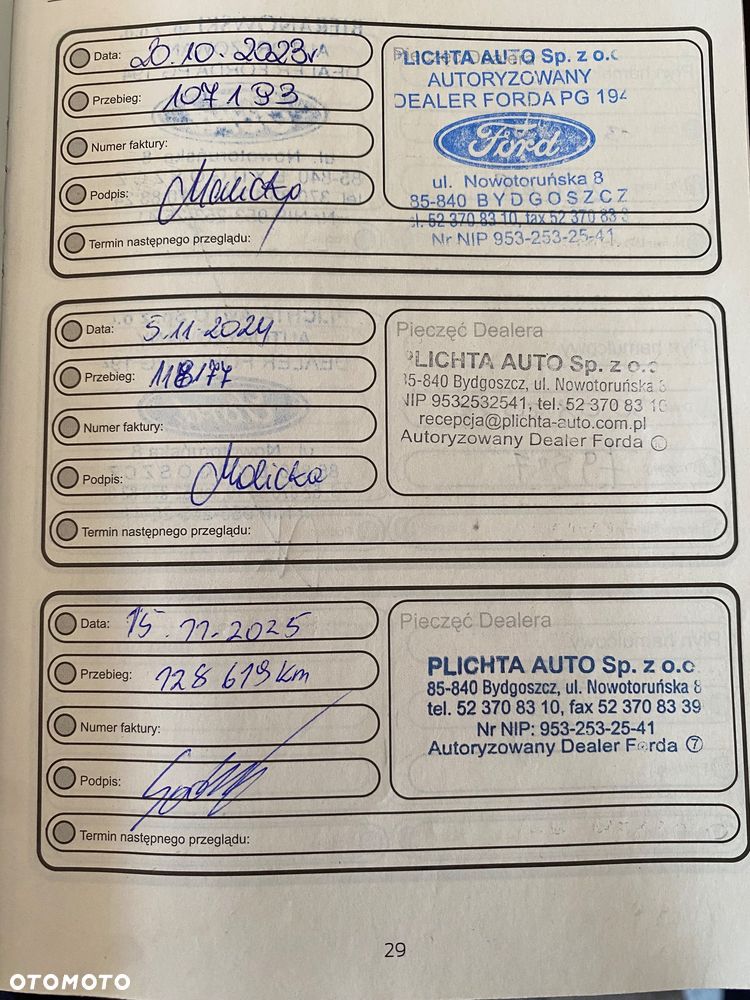 Data: 20.10.2023r
Przebieg: 107193
Numer faktury:
Podpis: Malicka
Termin następnego przeglądu:
PLICHTA AUTO Sp. z o.o
AUTORYZOWANY
DEALER FORDA PG 194
Ford
ul. Nowotoruńska 8
85-840 BYDGOSZCZ
tel. 52 370 83 10, fax 52 370 83 3
Nr NIP 953-253-25-41
Data: 5.11.2024
Przebieg: 118177
Numer faktury:
Podpis: Malicka
Termin następnego przeglądu:
Pieczęć Dealera
PLICHTA AUTO Sp. z o.o
85-840 Bydgoszcz, ul. Nowotoruńska 8
NIP 9532532541, tel. 52 370 83 10
recepcja@plichta-auto.com.pl
Autoryzowany Dealer Forda
Data: 15.11.2025
Przebieg: 128 619 km
Numer faktury:
Podpis:
Termin następnego przeglądu:
Pieczęć Dealera
PLICHTA AUTO Sp. z o.o.
85-840 Bydgoszcz, ul. Nowotoruńska 8
tel. 52 370 83 10, fax 52 370 83 39
Nr NIP: 953-253-25-41
Autoryzowany Dealer Forda 7
29
OTOMOTO